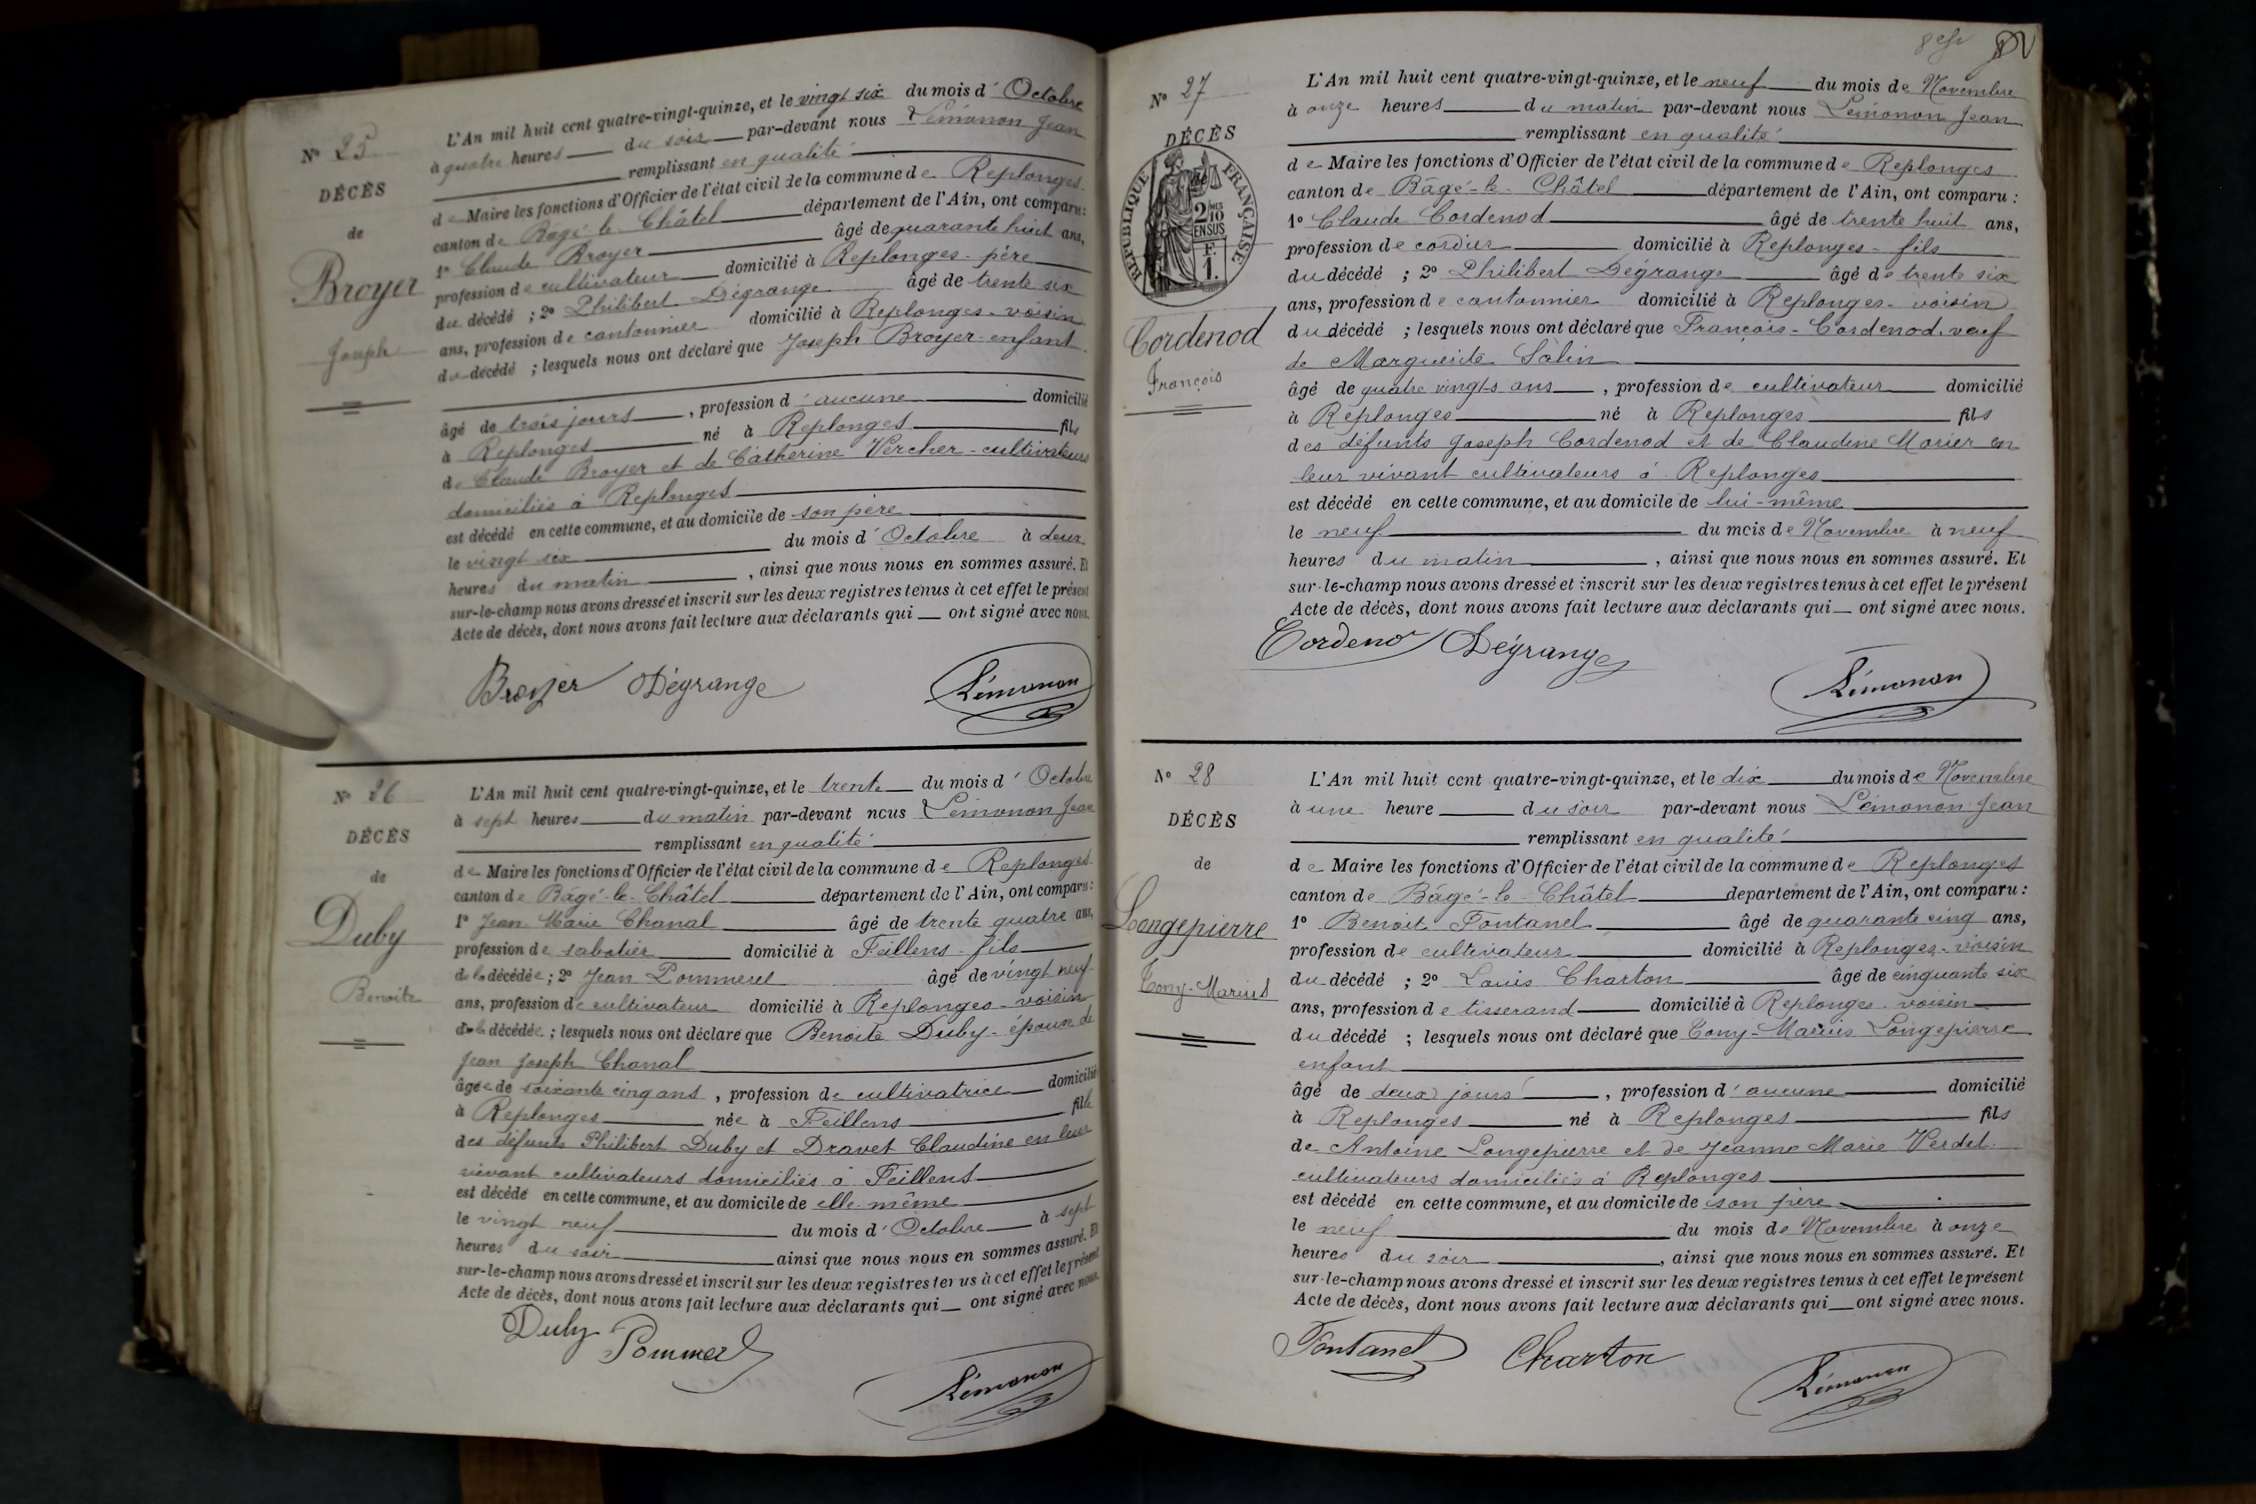 Nº 25
DÉCÈS
de
Broyer
Joseph
L'An mil huit cent quatre-vingt-quinze, et le vingt six du mois d' Octobre
à quatre heures du soir par-devant nous Lémonon Jean
remplissant en qualité
de Maire les fonctions d'Officier de l'état civil de la commune de Replonges
canton de Bagé-le-Châtel département de l'Ain, ont comparu :
1º Claude Broyer âgé de quarante huit ans,
profession de cultivateur domicilié à Replonges - père
du décédé ; 2º Philibert Dégrange âgé de trente six
ans, profession de cantonnier domicilié à Replonges - voisin
du décédé ; lesquels nous ont déclaré que Joseph Broyer - enfant
âgé de trois jours, profession d' aucune domicilié
à Replonges né à Replonges fils
de Claude Broyer et de Catherine Vercher - cultivateurs
domiciliés à Replonges
est décédé en cette commune, et au domicile de son père
le vingt six du mois d' Octobre à deux
heures du matin, ainsi que nous nous en sommes assuré. Et
sur-le-champ nous avons dressé et inscrit sur les deux registres tenus à cet effet le présent
Acte de décès, dont nous avons fait lecture aux déclarants qui ont signé avec nous.
Broyer Dégrange Lémonon
Nº 26
DÉCÈS
de
Duby
Benoite
L'An mil huit cent quatre-vingt-quinze, et le trente du mois d' Octobre
à sept heures du matin par-devant nous Lémonon Jean
remplissant en qualité
de Maire les fonctions d'Officier de l'état civil de la commune de Replonges
canton de Bâgé-le-Châtel département de l'Ain, ont comparu :
1º Jean Marie Chanal âgé de trente quatre ans,
profession de sabotier domicilié à Feillens - fils
de la décédée ; 2º Jean Pommerel âgé de vingt neuf
ans, profession de cultivateur domicilié à Replonges - voisin
de la décédée ; lesquels nous ont déclaré que Benoite Duby - épouse de
Jean Joseph Chanal
âgée de soixante cinq ans, profession de cultivatrice domicilié
à Replonges née à Feillens fille
des défunts Philibert Duby et Dravet Claudine en leur
vivant cultivateurs domiciliés à Feillens
est décédé en cette commune, et au domicile de elle-même
le vingt neuf du mois d' Octobre à sept
heures du soir ainsi que nous nous en sommes assuré. Et
sur-le-champ nous avons dressé et inscrit sur les deux registres tenus à cet effet le présent
Acte de décès, dont nous avons fait lecture aux déclarants qui ont signé avec nous.
Duby Pommerel
Lémonon
Nº 27
DÉCÈS
de
RÉPUBLIQUE FRANÇAISE
2/10 EN SUS
F. 1.
Cordenod
François
L'An mil huit cent quatre-vingt-quinze, et le neuf du mois de Novembre
à onze heures du matin par-devant nous Lémonon Jean
remplissant en qualité
de Maire les fonctions d'Officier de l'état civil de la commune de Replonges
canton de Bâgé-le-Châtel département de l'Ain, ont comparu :
1º Claude Cordenod âgé de trente huit ans,
profession de cordier domicilié à Replonges - fils
du décédé ; 2º Philibert Dégrange âgé de trente six
ans, profession de cantonnier domicilié à Replonges - voisin
du décédé ; lesquels nous ont déclaré que François - Cordenod, veuf
de Marguerite Salin
âgé de quatre vingts ans, profession de cultivateur domicilié
à Replonges né à Replonges fils
des défunts Joseph Cordenod et de Claudine Morier en
leur vivant cultivateurs à Replonges
est décédé en cette commune, et au domicile de lui-même
le neuf du mois de Novembre à neuf
heures du matin, ainsi que nous nous en sommes assuré. Et
sur-le-champ nous avons dressé et inscrit sur les deux registres tenus à cet effet le présent
Acte de décès, dont nous avons fait lecture aux déclarants qui ont signé avec nous.
Cordenod Dégrange
Lémonon
Nº 28
DÉCÈS
de
Longepierre
Tony-Marius
L'An mil huit cent quatre-vingt-quinze, et le dix du mois de Novembre
à une heure du soir par-devant nous Lémonon Jean
remplissant en qualité
de Maire les fonctions d'Officier de l'état civil de la commune de Replonges
canton de Bâgé-le-Châtel département de l'Ain, ont comparu :
1º Benoit Fontanel âgé de quarante cinq ans,
profession de cultivateur domicilié à Replonges - voisin
du décédé ; 2º Louis Charton âgé de cinquante six
ans, profession de tisserand domicilié à Replonges - voisin
du décédé ; lesquels nous ont déclaré que Tony-Marius Longepierre
enfant
âgé de deux jours, profession d' aucune domicilié
à Replonges né à Replonges fils
de Antoine Longepierre et de Jeanne Marie Verdet
cultivateurs domiciliés à Replonges
est décédé en cette commune, et au domicile de son père
le neuf du mois de Novembre à onze
heures du soir, ainsi que nous nous en sommes assuré. Et
sur-le-champ nous avons dressé et inscrit sur les deux registres tenus à cet effet le présent
Acte de décès, dont nous avons fait lecture aux déclarants qui ont signé avec nous.
Fontanel Charton
Lémonon